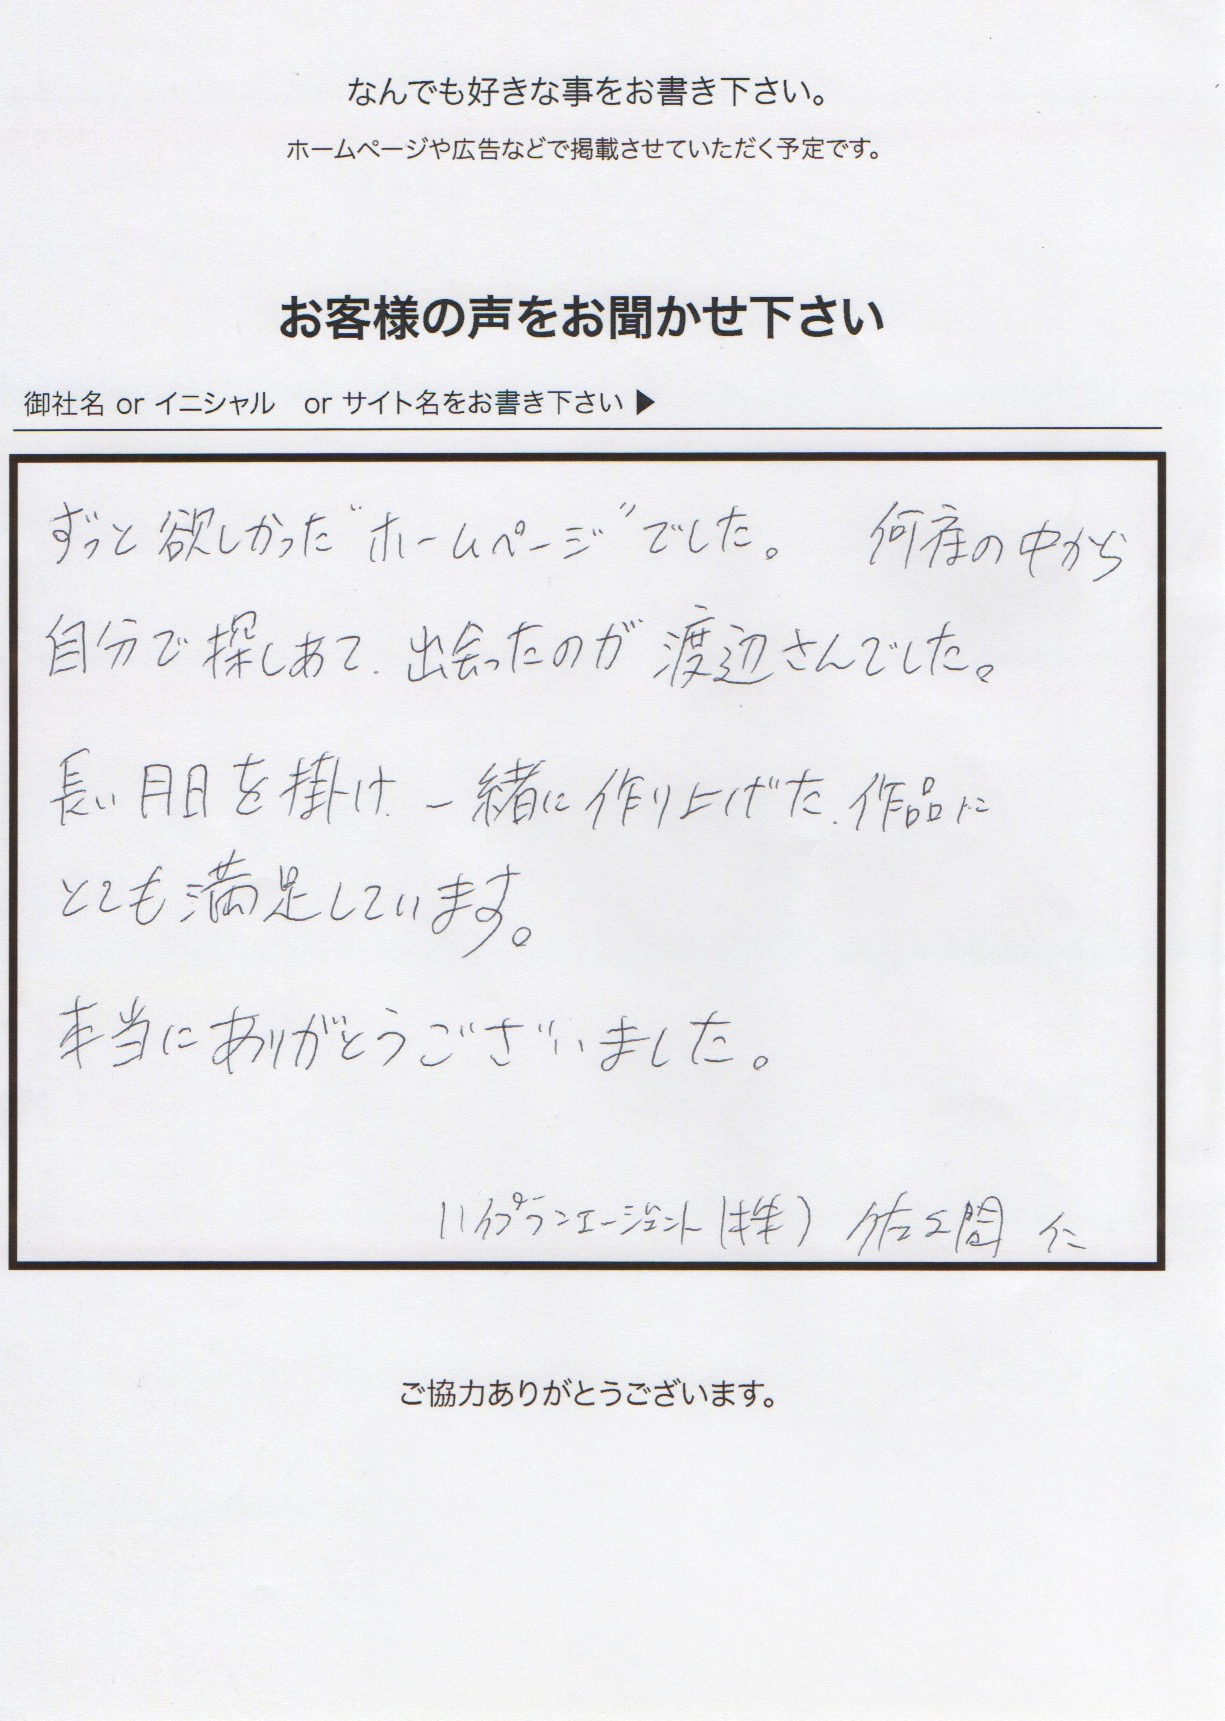 なんでも好きな事をお書き下さい。
ホームページや広告などで掲載させていただく予定です。
お客様の声をお聞かせ下さい
御社名 or イニシャル　or サイト名をお書き下さい ▶
ずっと欲しかった“ホームページ”でした。　の中から
自分で探しあて、出会ったのが渡辺さんでした。
長い月日を掛け、一緒に作り上げた、作品に
とても満足しています。
本当にありがとうございました。
ハイプランエージェント(株)　佐々間　仁
ご協力ありがとうございます。